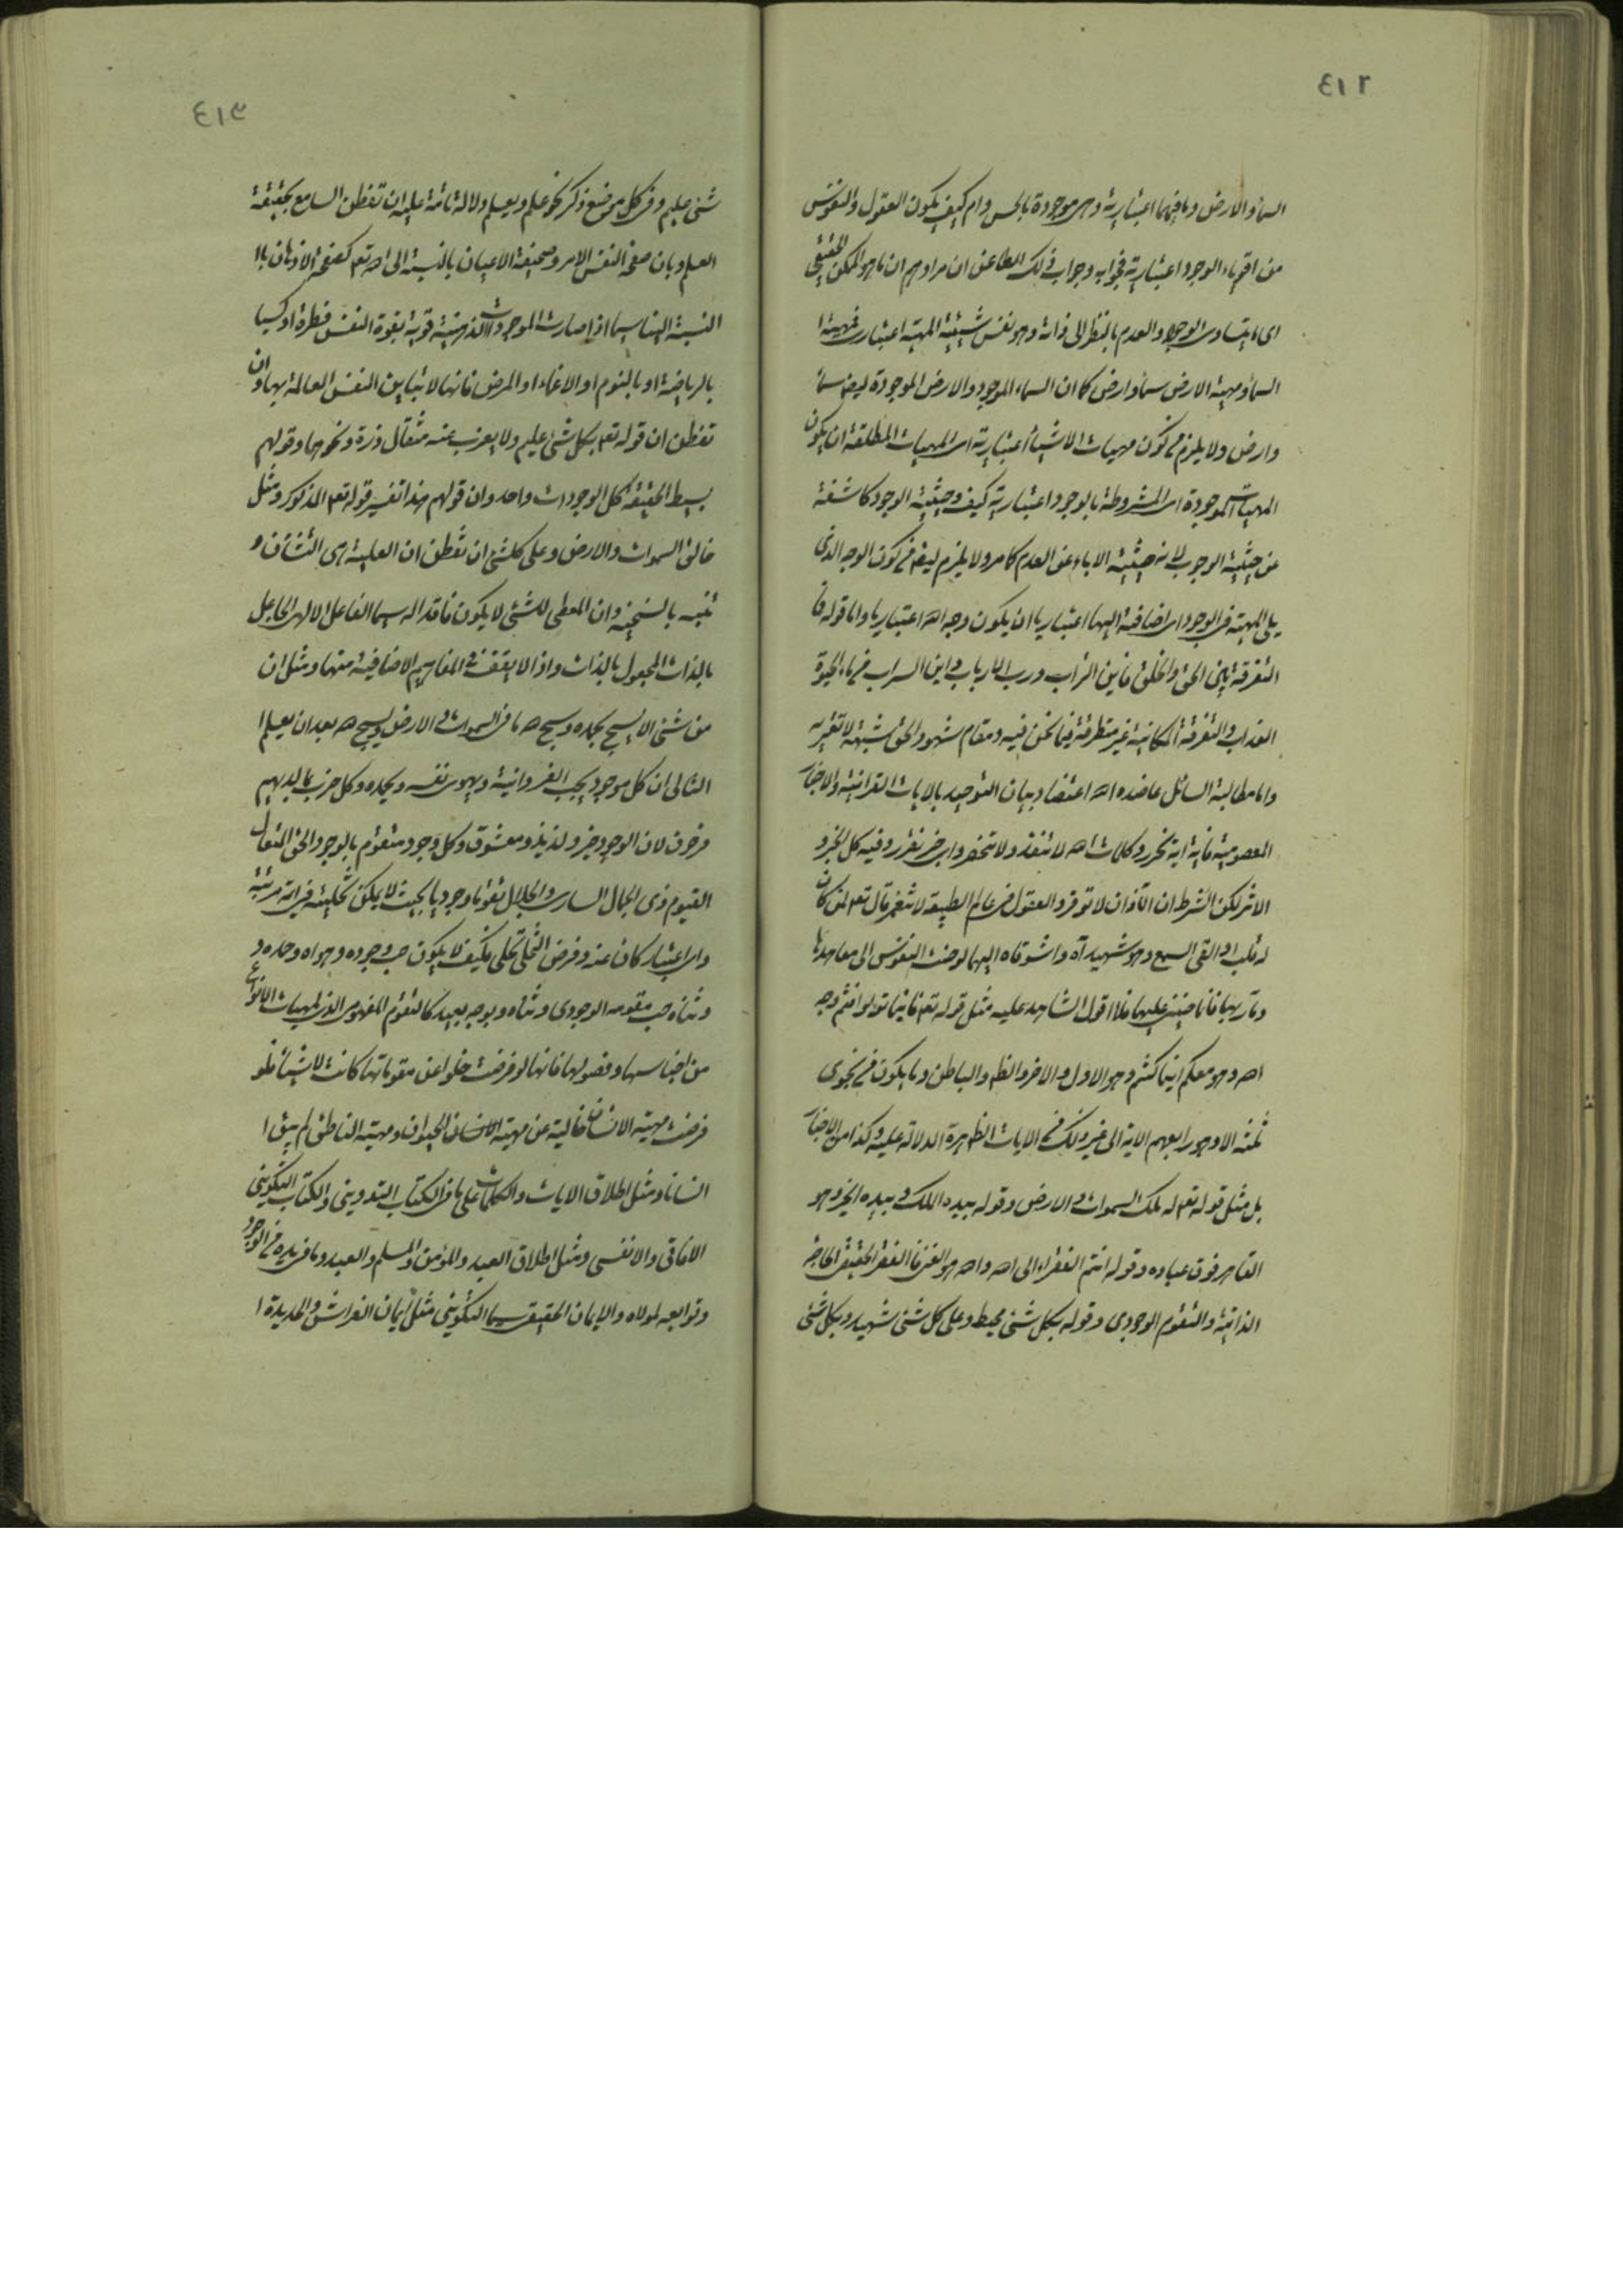 ٤١٢
السماء والارض وما فيهما اعتبارية وهى موجودة بالحس وام كيف يكون العقول والنفوس
من اقوياء الوجود اعتبارية فجوابه وجواب ذلك الطاعن ان مرادهم ان ما هو الممكن الحقيقى
اى ما يتساوى الوجود والعدم بالنظر الى ذاته وهو نفس شيئية المهية اعتبارى فمهية ا
السماء ومهية الارض سماء وارض كما ان السماء الموجود والارض الموجودة ليضر سماء
وارض ولا يلزم من كون مهيات الاشياء اعتبارية اى المهيات المطلقة ان يكون
المهيات الموجودة اى المشروطة بالوجود اعتبارية كيف وحيثية الوجود كاشفة
عن حيثية الوجوب لانه حيثية الاباء عن العدم كما مر ولا يلزم ليضر من كون الوجه الذى
يلى المهية فى الوجود اى اضافته اليها اعتباريا ان يكون وجه الله اعتباريا واما قوله فا
التفرقة بين الحق والخلق فاين التراب ورب الارباب واين السراب من ماء الحيوة
العذاب والتفرقة المكانية غير متطرقة فيما نحن فيه ومقام شهود الحق شبهة لا تعتريه
واما مطالبة السائل عاضده الله اعتضاد بيان التوحيد بالايات القرانية والاخبار
المعصومية فاية اية نحرر وكلمات الله لا تنفد ولا تنحصر واى خبر نقرر وفيه كل الخبر و
الاثر لكن الشرط ان الاذان لا توقر والعقول فى عالم الطبيعة لا تنغمر قال تعم لمن كان
له قلب او القى السمع وهو شهيد آه واشوقاه اليها لو حنت النفوس الى معاهدها
ومآربها فانا ضنين عليها فلا اقول الشاهد عليه مثل قوله تعم فاينما تولوا فثم وجه
الله وهو معكم اينما كنتم وهو الاول والاخر والظ والباطن وما يكون من نجوى
ثلثة الا وهو رابعهم الاية الى غير ذلك من الايات الظاهرة الدلالة عليه وكذا من الاخبار
بل مثل قوله تعم له ملك السموات والارض وقوله بيده الملك وبيده الخير وهو
القاهر فوق عباده وقوله انتم الفقراء الى الله والله هو الغنى فا الفقر الحقيقى الحاجة
الذاتية والتقوم الوجودى وقوله بكل شئ محيط وعلى كل شئ شهيد وبكل شئ
٤١٣
شئ عليم وفى كل موضع ذكر نحو علم ويعلم دلالة تامة عليه ان تفطن السامع بحقيقة
العلم وبان صفحة النفس الامر وصحيفة الاعيان بالنسبة الى الله تعم كصفحة الاذهان با
النسبة الينا سيما اذا صارت الموجودات الذهنية قوية بقوة النفس فطرة او كسبا
بالرياضة او بالنوم او الاغماء او المرض فانها لا تباين النفس العالمة بها وان
تفطن ان قوله تعم بكل شئ عليم ولا يعزب عنه مثقال ذرة ونحوهما وقولهم
بسيط الحقيقة كل الوجودات واحد وان قولهم هذا تفسير قوله تعم المذكور ومثل
خالق السموات والارض وعلى كلشئ ان تفطن ان العلية هى التشأن و
ئنيسه بالسنخية وان المعطى للشئ لا يكون فاقدا له سيما الفاعل الالهى الجاعل
بالذات المجعول بالذات واذ الا يقف فى المفاهيم الاضافية منها ومثل ان
من شئ الا يسبح بحمده وسبح لله ما فى السموات والارض ويسبح لله بعد ان يعلم ا
التالى ان كل موجود يحب الفردانية ويهوى نفسه ويحمده وكل حزب بما لديهم
فرحون لان الوجود خير ولذيذ ومعشوق وكل وجود متقوم بالوجود الحق المتعال
القيوم ذى الجمال السارى والجلال تقوما وجوديا بحيث لا يمكن تخليته فى اية مرتبة
واى اعتبار كان عنه وفرض التخلى تحلى فكيف لا يكون حب وجوده وهواه وحمده و
وثناه حب مقومه الوجودى وثناه وبوجه بعيد كالتقوم المفهومى الذى لمهيات الانواع
من اجناسها وفصولها فانها لو فرضت خلوا عن مقوماتها كانت لا شيئا فلو
فرضت مهية الانسان خالية عن مهية الحيوان ومهية الناطق لم يبق ا
انسانا ومثل اطلاق الايات والكلمات على ما فى الكتاب التدوينى والكتاب التكوينى
الافاقى والانفسى ومثل اطلاق العبد والمؤمن والمسلم والعبد وما فى يده من الوجود
وتوابعه لمولاه والايمان الحقيقى سيما التكوينى مثل ايمان الفراش والحديدة ا